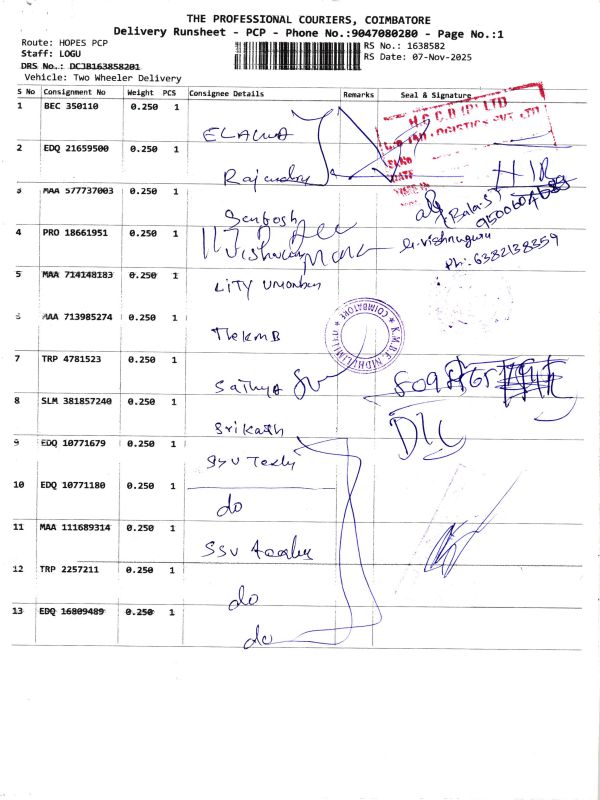 THE PROFESSIONAL COURIERS, COIMBATORE
Delivery Runsheet - PCP - Phone No.:9047080280 - Page No.:1
Route: HOPES PCP
Staff: LOGU
DRS No.: DCJB163858201
Vehicle: Two Wheeler Delivery
RS No.: 1638582
RS Date: 07-Nov-2025
S No Consignment No Weight PCS Consignee Details Remarks Seal & Signature
1 BEC 350110 0.250 1
2 EDQ 21659500 0.250 1 Rajendran
3 MAA 577737003 0.250 1 Santosh (Bala.S)
4 PRO 18661951 0.250 1 G.Vishnuguru
Ph: 6382138359
5 MAA 714148183 0.250 1 CITY
6 MAA 713985274 0.250 1 The KMB
K.M.B.F NIDHI LIMITED
COIMBATORE
7 TRP 4781523 0.250 1 Sathya
8 SLM 381857240 0.250 1 Srikath
9 EDQ 10771679 0.250 1 SSV
10 EDQ 10771180 0.250 1 do
11 MAA 111689314 0.250 1 SSV
12 TRP 2257211 0.250 1 do
13 EDQ 16809489 0.250 1 do